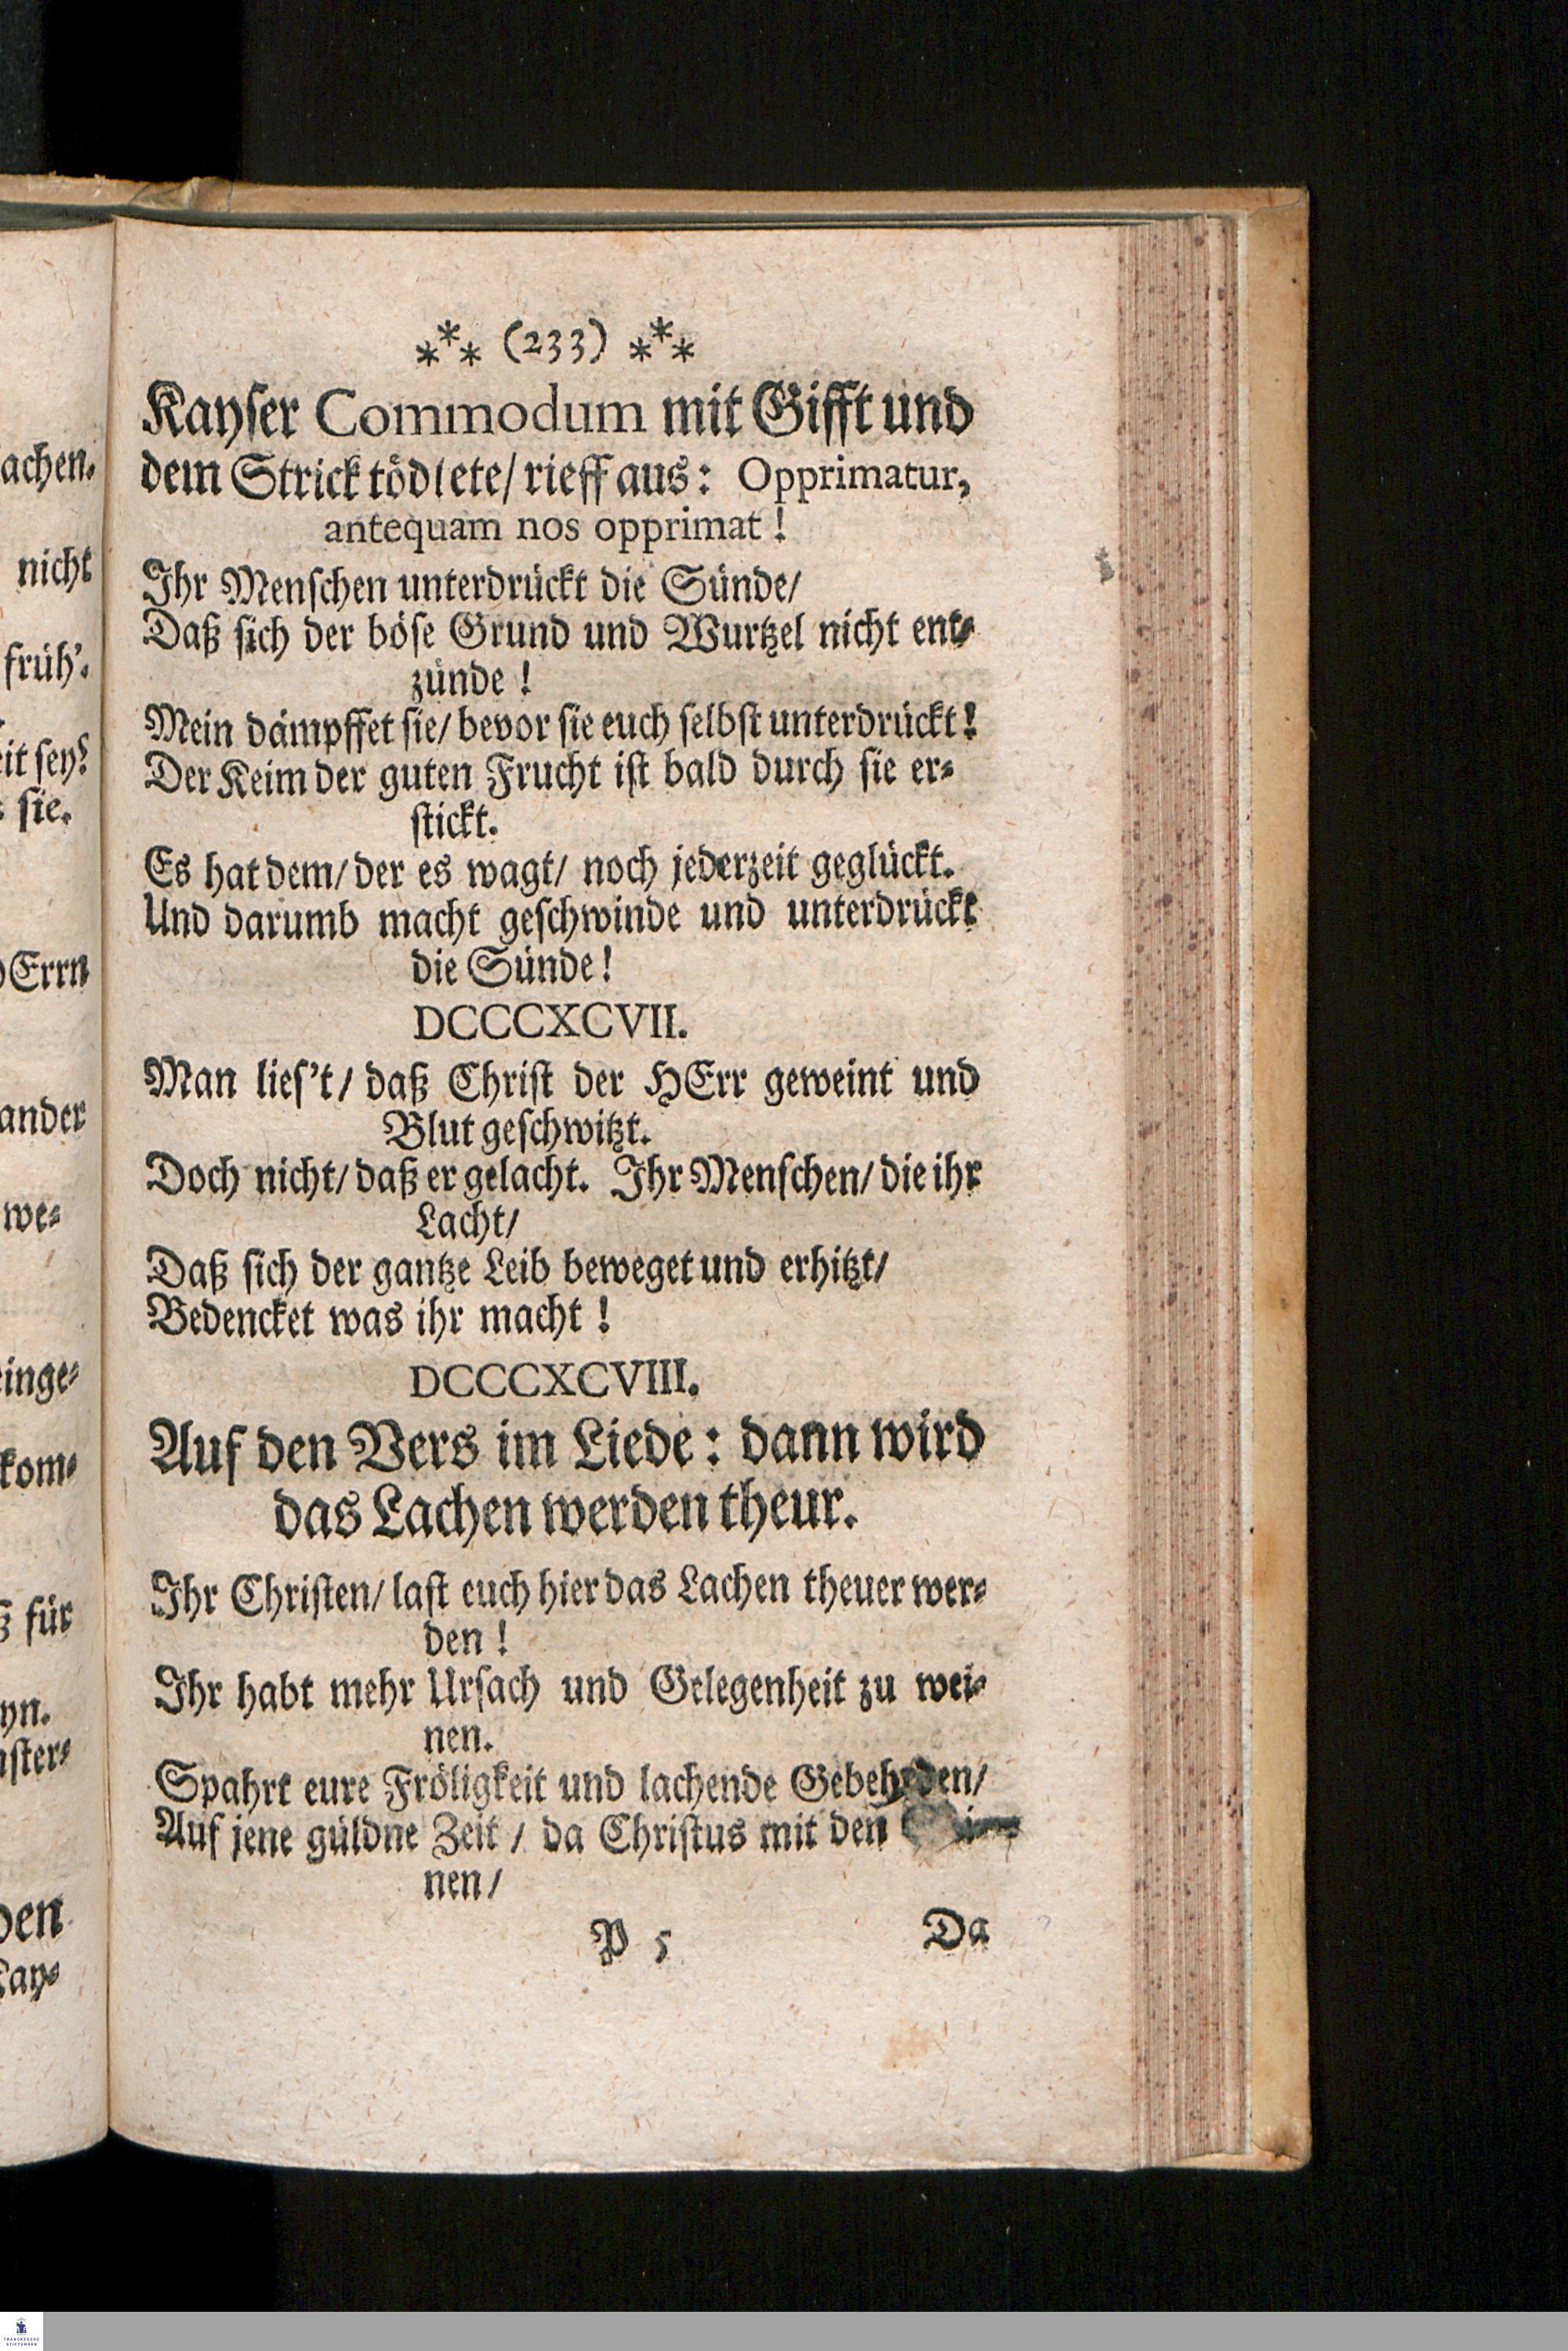 achen.
nicht
früh'.
eit sey?
sie.
HErrn
ander
we-
einge-
kom-
für
yn.
nster-
den
Kay-
*** (233) ***
Kayser Commodum mit Gifft und
dem Strick tödtete/ rieff aus: Opprimatur,
antequam nos opprimat!
Ihr Menschen unterdrückt die Sünde/
Daß sich der böse Grund und Wurtzel nicht ent-
zünde!
Mein dämpffet sie/ bevor sie euch selbst unterdrückt!
Der Keim der guten Frucht ist bald durch sie er-
stickt.
Es hat dem/ der es wagt/ noch jederzeit geglückt.
Und darumb macht geschwinde und unterdrückt
die Sünde!
DCCCXCVII.
Man lies't/ daß Christ der HErr geweint und
Blut geschwitzt.
Doch nicht/ daß er gelacht. Ihr Menschen/ die ihr
Lacht/
Daß sich der gantze Leib beweget und erhitzt/
Bedencket was ihr macht!
DCCCXCVIII.
Auf den Vers im Liede: dann wird
das Lachen werden theur.
Ihr Christen/ last euch hier das Lachen theuer wer-
den!
Ihr habt mehr Ursach und Gelegenheit zu wei-
nen.
Spahrt eure Fröligkeit und lachende Gebehrden/
Auf jene güldne Zeit/ da Christus mit den
nen/
P 5 Da
FRANCKESCHE
STIFTUNGEN